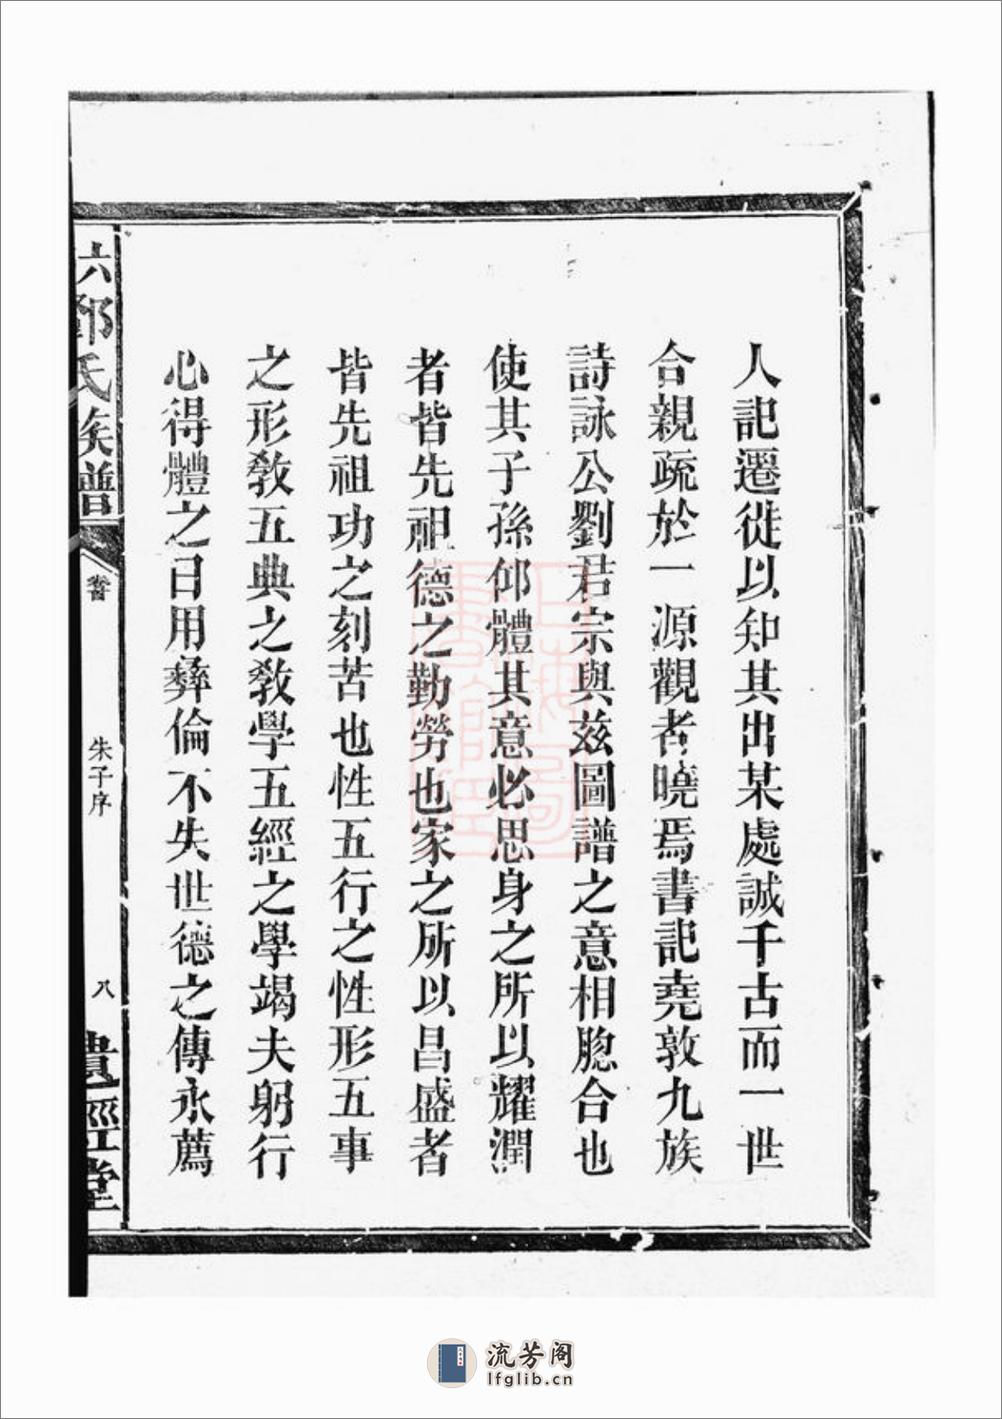 人記遷徙以知其出某處誠千古而一世
合親疏於一源觀者曉焉書記堯敦九族
詩詠公劉君宗與茲圖譜之意相脗合也
使其子孫仰體其意必思身之所以耀潤
者皆先祖德之勤勞也家之所以昌盛者
皆先祖功之刻苦也性五行之性形五事
之形教五典之教學五經之學竭夫躬行
心得體之日用彝倫不失世德之傳永薦
六鄒氏族譜
卷首
朱子序
八
遺經堂
流芳阁
lfglib.cn